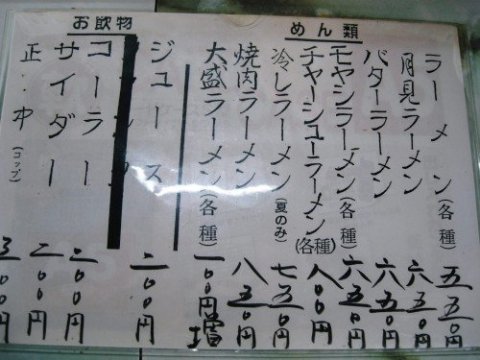 めん類
ラーメン(各種) 五五0円
月見ラーメン 六五0円
バターラーメン 六五0円
モヤシラーメン(各種) 六五0円
チャーシューラーメン(各種) 八00円
冷しラーメン(夏のみ) 七五0円
焼肉ラーメン 八五0円
大盛ラーメン(各種) 一00円増
お飲物
ジュース 二00円
コーラー 二00円
サイダー 二00円
正・中(コップ) 三00円